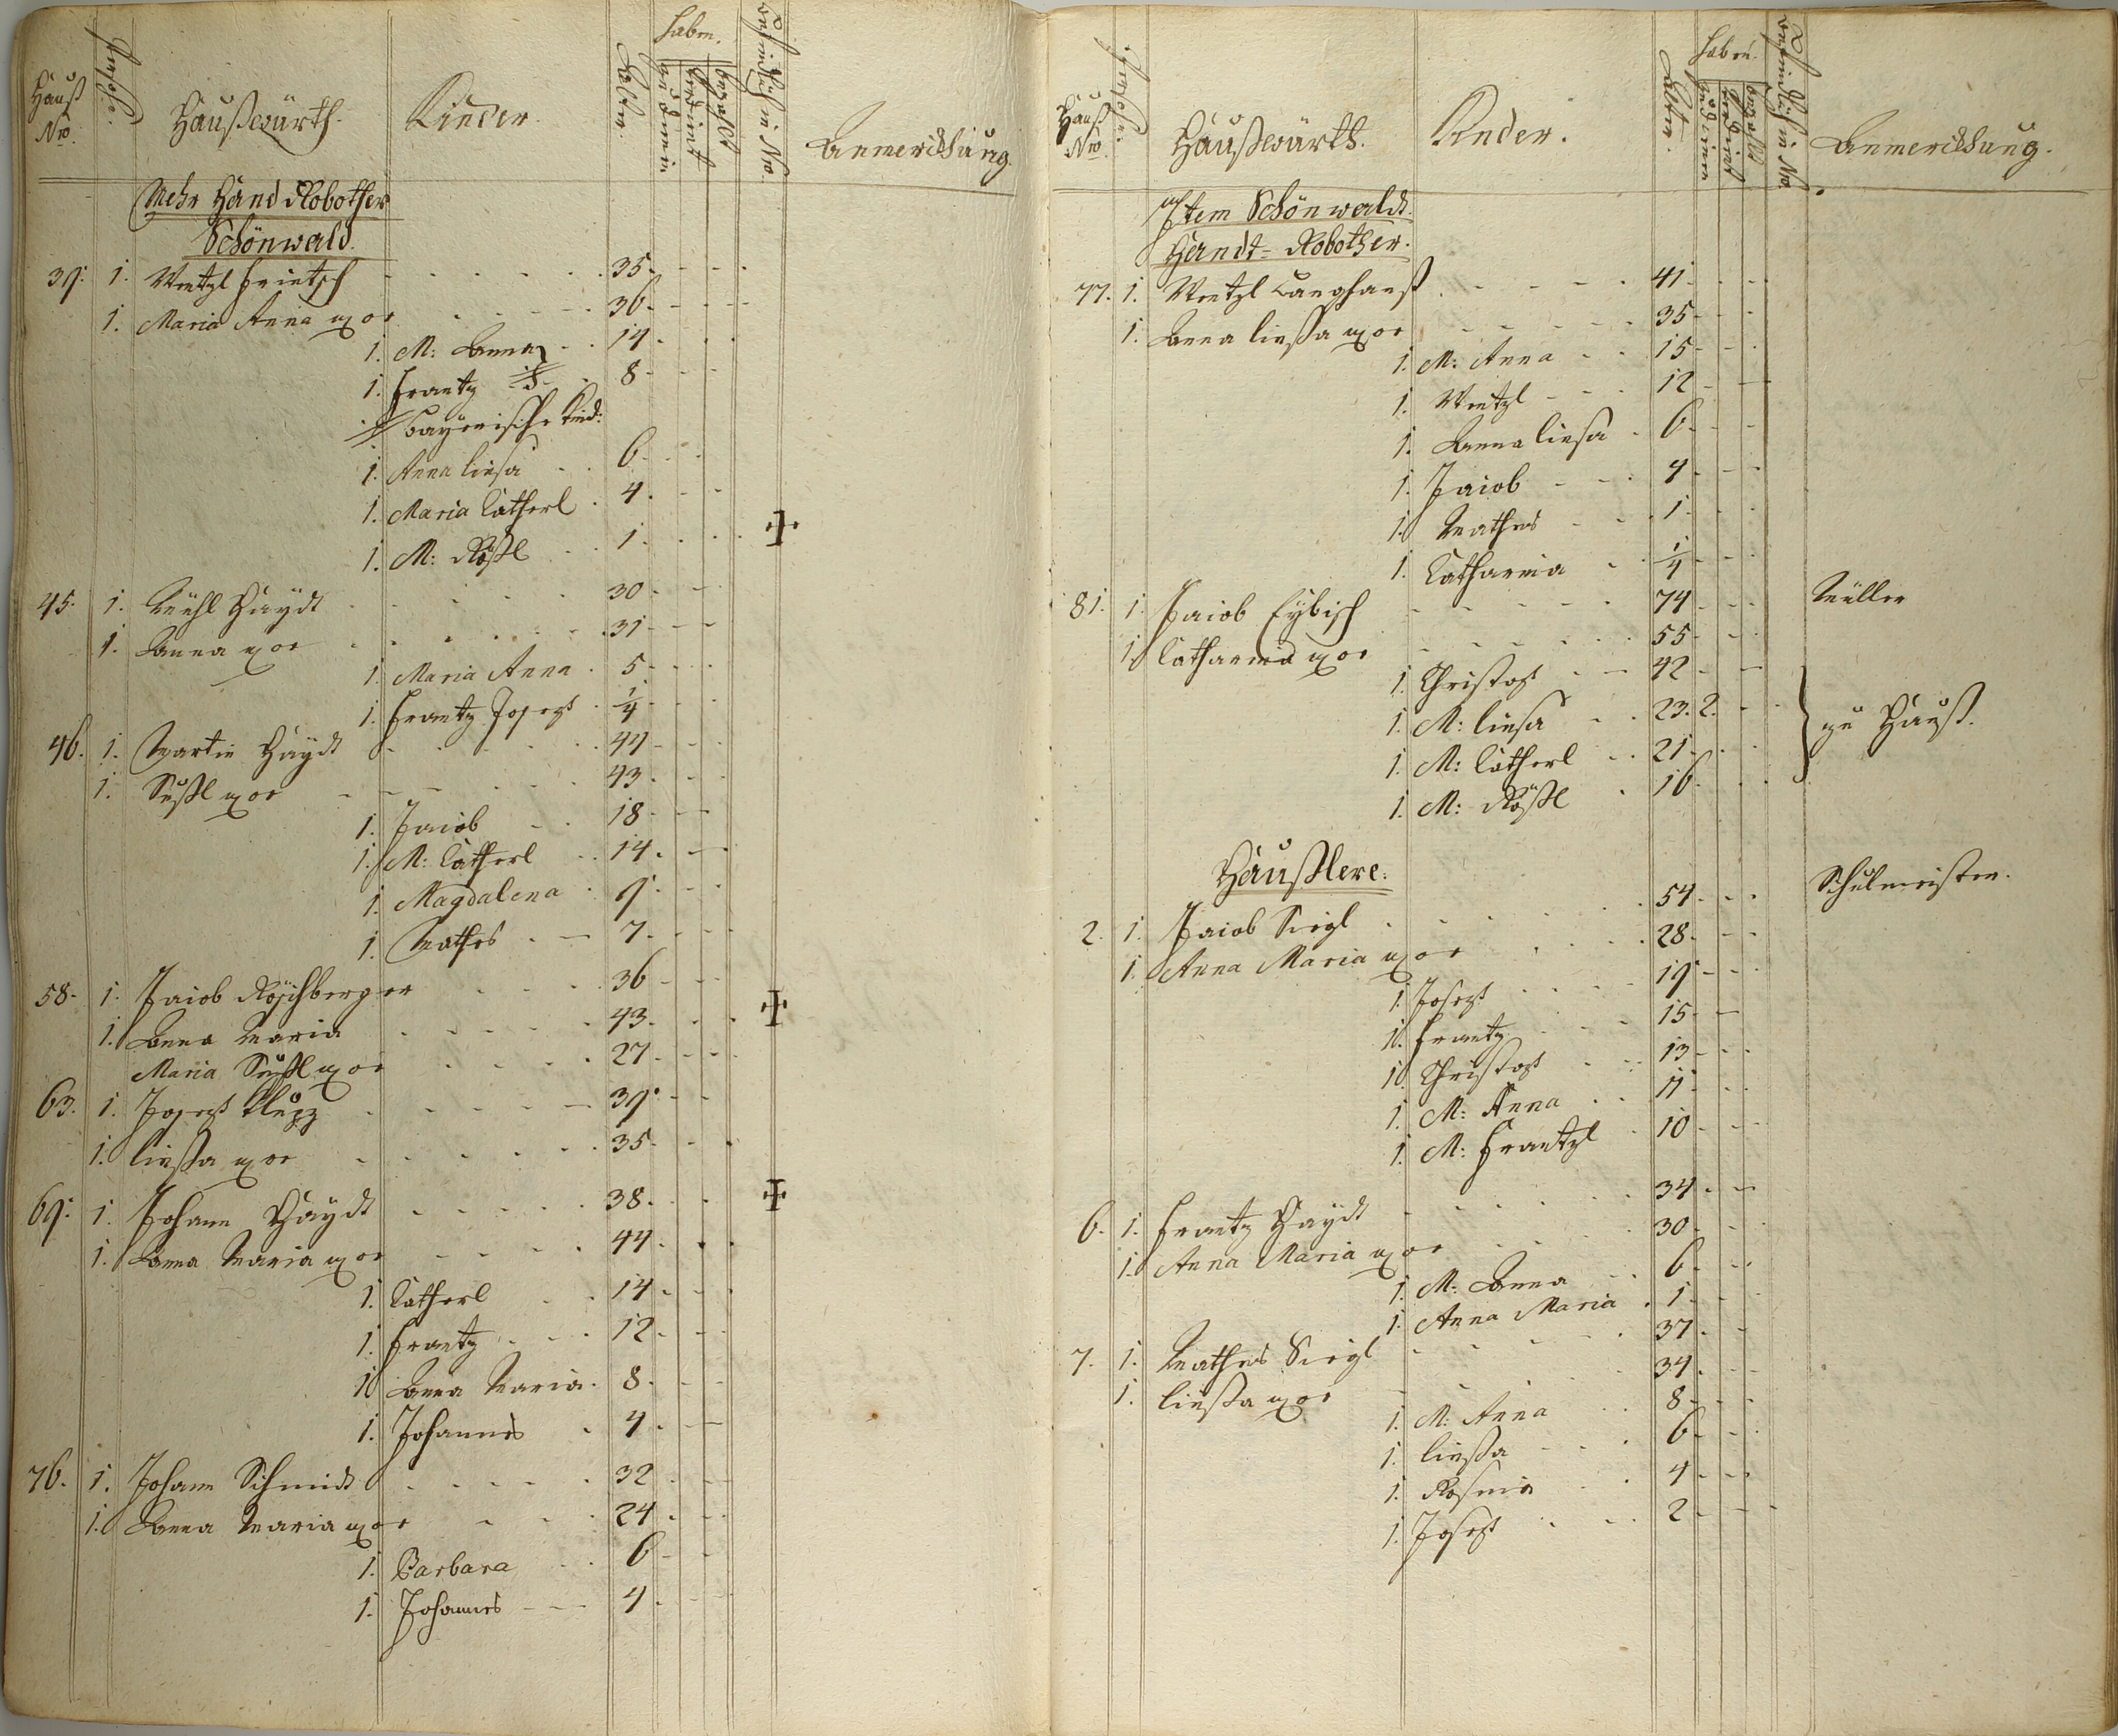 Hauß Nro.
Persohn.
Haußwürth.
Kinder.
Alter.
haben.
zu dienen
verdient
bezahlt
Befindlich in Nro.
Anmerckhung.
Mehr Hand Robother
Schönwald.
39. 1. Wentzl Frietsch 35.
1. Maria Anna uxor 36.
1. M: Anna 14.
1. Frantz 8
bayerische Kind:
1. Anna Liesa 6.
1. Maria Catherl 4.
1. M: Roßl 1.
45. 1. Michl Haydt 30
1. Anna uxor 31
1. Maria Anna 5.
1. Frantz Joseph 1/4
46. 1. Martin Haydt 44
1. Sußl uxor 43.
1. Jacob 18
1. M: Catherl 14.
1. Magdalena 9.
1. Mathes 7.
58. 1. Jacob Röschberger 36
1. Anna Maria 43.
Maria Sußl uxor 27.
63. 1. Joseph Klupp 39.
1. Liessa uxor 35.
69. 1. Johann Haydt 38.
1. Anna Maria uxor 44.
1. Catherl 14.
1. Frantz 12.
1. Anna Maria 8.
1. Johannes 4.
76. 1. Johann Schmidt 32
1. Anna Maria uxor 24.
1. Barbara 6
1. Johannes 4.
Hauß Nro.
Persohn.
Haußwürth.
Kinder.
Alter.
haben.
zu dienen
verdient
bezahlt
Befindlich in Nro.
Anmerckhung.
Item Schönwaldt.
Handt-Robother.
77. 1. Wentzl Langhanß 41
1. Anna Liessa uxor 35
1. M: Anna 15
1. Wentzl 12
1. Anna Liesa 6.
1. Jacob 4
1. Mathes 1.
1. Catharina 1/4
81. 1. Jacob Eybisch 74 Müller
1. Catharina uxor 55
1. Christoph 42
1. M: Liesa 23. 2.
1. M: Catherl 21
1. M: Roßl 16
zu Hauß.
Häußlere:
2. 1. Jacob Siegl 54 Schulmeister.
1. Anna Maria uxor 28
1. Joseph 19
1. Frantz 15
1. Christoph 13
1. M: Anna 11
1. M: Frantzl 10
6. 1. Frantz Haydt 34
1. Anna Maria uxor 30
1. M: Anna 6
1. Anna Maria 1.
7. 1. Mathes Siegl 37.
1. Liessa uxor 34.
1. M: Anna 8
1. Liessa 6
1. Rosina 4
1. Joseph 2